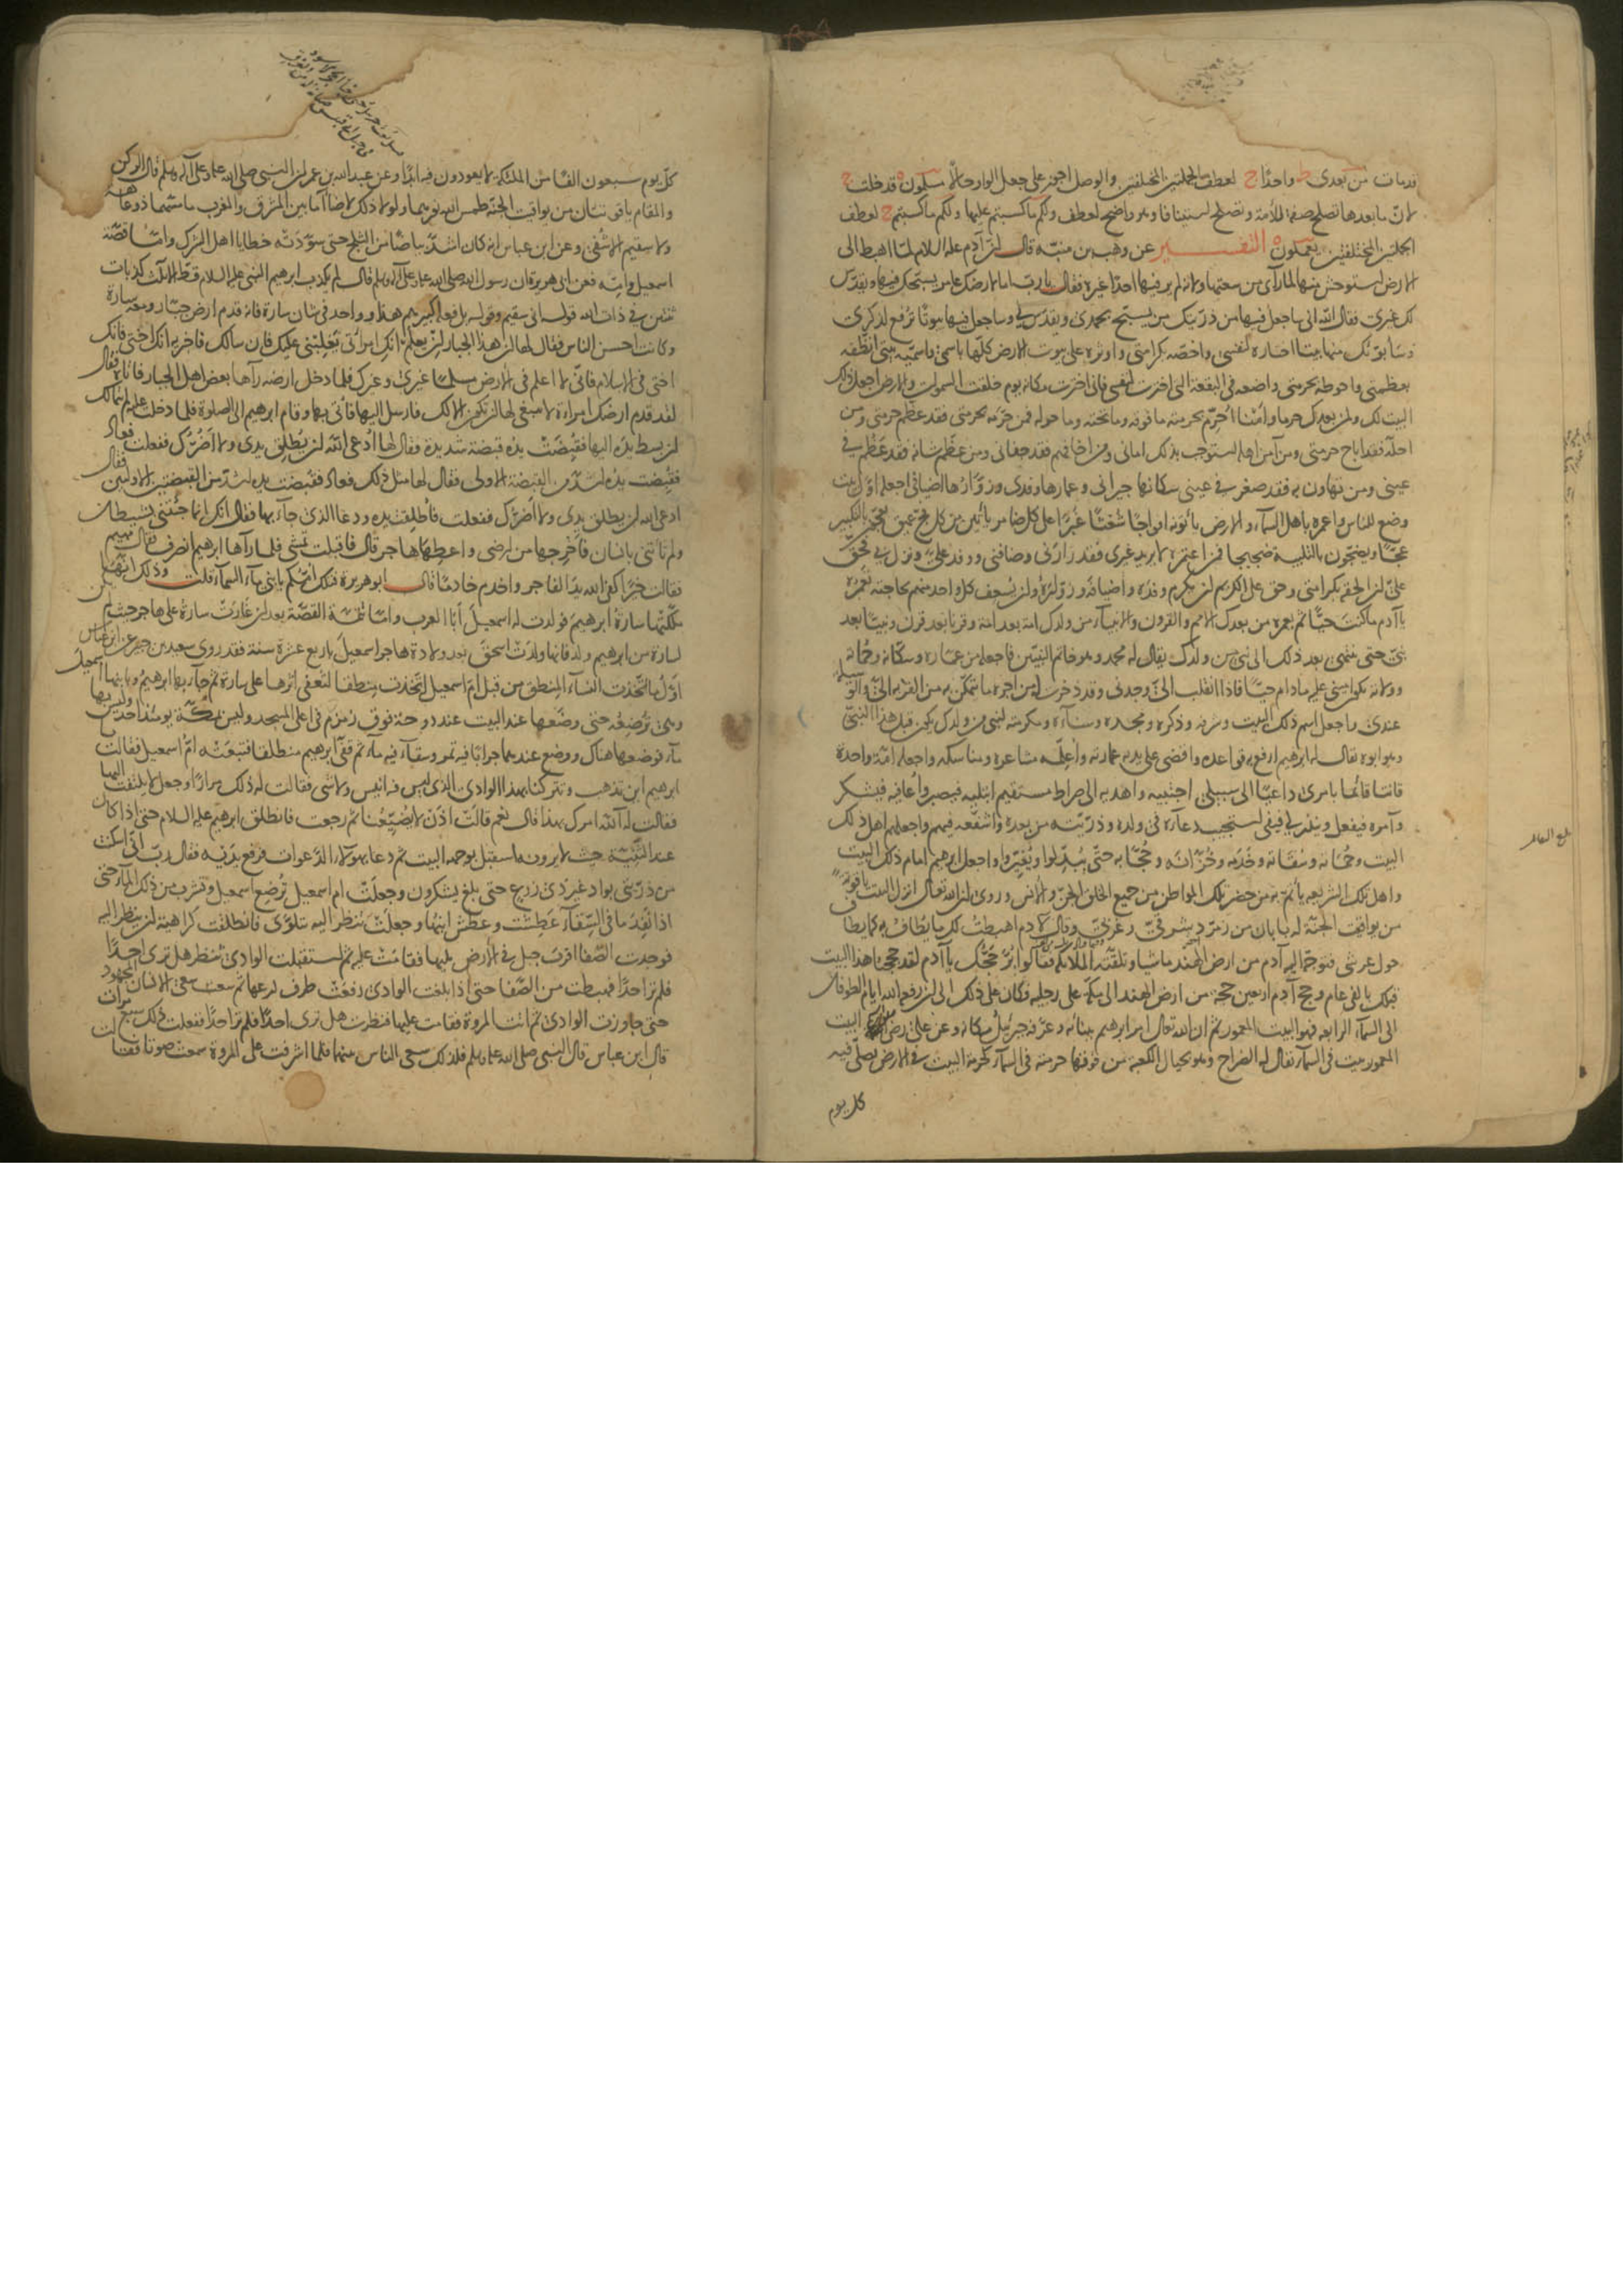 من بعدى ط واحدا ج لعطف الجملتين المختلفتين والوصل اجوز على جعل الواو حالا مسلمون ه قد خلت ج
لان ما بعدها تصلح صفة للامة وتصلح استينافا وهو واضح لعطف ولكم ما كسبتم عليها ولكم ما كسبتم ج لعطف
الجملتين المختلفتين يعملون ه التفسير عن وهب بن منبه قال ان آدم عليه السلام لما اهبط الى
الارض استوحش منها لما رآى من سعتها ولانه لم ير فيها احدا غيره فقال يا رب اما لارضك عامر يسبحك فيها ويقدس
لك غيرى فقال الله انى ساجعل فيها من ذريتك من يسبح بحمدى ويقدس لى وساجعل فيها بيوتا ترفع لذكرى
وسابوئك منها بيتا اختاره لنفسى واخصه بكرامتى واوثره على بيوت الارض كلها باسمى واسميه بيتى انطقه
بعظمتى واحوطه بحرمتى واضعه فى البقعة التى اخترت لنفسى فانى اخترت مكانه يوم خلقت السموات والارض اجعل ذلك
البيت لك ولمن بعدك حرما وامنا احرم بحرمته ما فوقه وما تحته وما حوله فمن حرمه بحرمتى فقد عظم حرمتى ومن
احله فقد اباح حرمتى ومن آمن اهله استوجب بذلك امانى ومن اخافهم فقد جفانى ومن عظم شانه فقد عظم فى
عينى ومن تهاون به فقد صغر فى عينى سكانها جيرانى وعمارها وفدى وزوارها اضيافى اجعله اول بيت
وضع للناس واعمره باهل السماء والارض ياتونه افواجا شعثا غبرا على كل ضامر ياتين من كل فج عميق يعجون بالتكبير
عجا ويضجون بالتلبية ضجيجا فمن اعتمره لا يريد غيرى فقد زارنى وضافنى ووفد على ونزل بى فحق
على ان اتحفه بكرامتى وحق على الكريم ان يكرم وفده واضيافه وزواره وان يسعف كل واحد منهم بحاجته تعمره
يا آدم ما كنت حيا ثم يعمره من بعدك الامم والقرون والانبياء من ولدك امة بعد امة وقرنا بعد قرن ونبيا بعد
نبى حتى ينتهى بعد ذلك الى نبى من ولدك يقال له محمد وهو خاتم النبيين فاجعله من عماره وسكانه وحماته
وولاته يكون امينى عليه ما دام حيا فاذا انقلب الى وجدنى وقد ذخرت له من اجره ما يتمكن به من القربة الى والوسيلة
عندى واجعل اسم ذلك البيت وشرفه وذكره ومجده وسناه ومكرمته لنبى من ولدك يكون قبل هذا النبى
وهو ابوه يقال له ابرهيم ارفع به قواعده واقضى على يديه عمارته واعلمه مشاعره ومناسكه واجعله امة واحدة
قانتا قائما بامرى داعيا الى سبيلى اجتبيه واهديه الى صراط مستقيم ابتليه فيصبر واعافيه فيشكر
وآمره فيفعل وينذر لى فيفى استجيب دعاءه فى ولده وذريته من بعده واشفعه فيهم واجعلهم اهل ذلك
البيت وحماته وسقاته وخدمه وخزانه وحجابه حتى يبدلوا ويغيروا واجعل ابرهيم امام ذلك البيت
واهل تلك الشريعه ياتم به من حضر تلك المواطن من جميع الخلق الجن والانس وروى ان الله تعالى انزل البيت ياقوتة
من يواقيت الجنة له بابان من زمرد شرقى وغربى وقال لآدم اهبطت لك ما يطاف به كما يطاف
حول عرشى فتوجه اليه آدم من ارض الهند ماشيا وتلقته الملائكه فقالوا بر حجك يا آدم لقد حججنا هذا البيت
قبلك بالفى عام وحج آدم اربعين حجة من ارض الهند الى مكة على رجليه وكان على ذلك الى ان رفعه الله ايام الطوفان
الى السماء الرابعه فهو البيت المعمور ثم ان الله تعالى امر ابرهيم ببنائه وعرفه جبرئيل مكانه وعن على رض البيت
المعمور بيت فى السماء يقال له الضراح وهو بحيال الكعبة من فوقها حرمته فى السماء كحرمة البيت فى الارض يصلى فيه
كل يوم
كل يوم سبعون الفا من الملئكة لا يعودون فيه ابدا وعن عبد الله بن عمر ان النبى صلى الله عليه وعلى آله وسلم قال الركن
والمقام ياقوتتان من يواقيت الجنة طمس الله نورهما ولولا ذلك لاضاءا ما بين المشرق والمغرب ما مسهما ذو عاهة
ولا سقيم الا شفى وعن ابن عباس انه كان اشد بياضا من الثلج حتى سودته خطايا اهل الشرك واما قصة
اسمعيل وامه فعن ابى هريرة ان رسول الله صلى الله عليه وعلى آله وسلم قال لم يكذب ابرهيم النبى عليه السلام قط الا ثلث كذبات
ثنتين فى ذات الله قوله انى سقيم وقوله بل فعله كبيرهم هذا وواحد فى شان سارة فانه قدم ارض جبار ومعه سارة
وكانت احسن الناس فقال لها ان هذا الجبار ان يعلم انك امراتى يغلبنى عليك فان سالك فاخبريه انك اختى فانك
اختى فى الاسلام فانى لا اعلم فى الارض مسلما غيرى وغيرك فلما دخل ارضه رآها بعض اهل الجبار فاتاه فقال
لقد قدم ارضك امراءة لا ينبغى لها ان تكون الا لك فارسل اليها فاتى بها وقام ابرهيم الى الصلوة فلما دخلت عليه لم يتمالك
ان بسط يده اليها فقبضت يده قبضة شديدة فقال لها ادعى الله ان يطلق يدى ولا اضرك ففعلت فعاد
فقبضت يده اشد من القبضة الاولى فقال لها مثل ذلك فعاد فقبضت يده اشد من القبضتين الاوليين فقال
ادعى الله ان يطلق يدى ولا اضرك ففعلت فاطلقت يده ودعا الذى جاء بها فقال انك انما جئتنى بشيطان
ولم تاتنى بانسان فاخرجها من ارضى واعطها هاجر قال فاقبلت تمشى فلما رآها ابرهيم انصرف فقال مهيم
فقالت خيرا كف الله يد الفاجر واخدم خادما قال ابو هريرة فتلك امكم يا بنى ماء السماء قلت وذلك انها
ملكتها سارة ابرهيم فولدت له اسمعيل ابا العرب واما تتمة القصة بعد ان غارت سارة على هاجر حيث لم يكن
لسارة من ابرهيم ولد فانها ولدت اسحق بعد ولادة هاجر اسمعيل باربع عشرة سنة فقد روى سعيد بن جبير عن ابن عباس
اول ما اتخذت النساء المنطق من قبل ام اسمعيل اتخذت منطقا لتعفى اثرها على سارة ثم جاء بها ابرهيم وبابنها اسمعيل
وهى ترضعه حتى وضعها عند البيت عند دوحة فوق زمزم فى اعلى المسجد وليس بمكة يومئذ احد وليس بها
ماء فوضعها هناك ووضع عندهما جرابا فيه تمر وسقاء فيه ماء ثم قفى ابرهيم منطلقا فتبعته ام اسمعيل فقالت
ابرهيم اين تذهب وتتركنا بهذا الوادى الذى ليس فيه انيس ولا شى فقالت له ذلك مرارا وجعل لا يلتفت اليها
فقالت له آلله امرك بهذا قال نعم قالت اذن لا يضيعنا ثم رجعت فانطلق ابرهيم عليه السلام حتى اذا كان
عند الثنية حيث لا يرونه استقبل بوجهه البيت ثم دعا بهؤلاء الدعوات فرفع يديه فقال رب انى اسكنت
من ذريتى بواد غير ذى زرع حتى بلغ يشكرون وجعلت ام اسمعيل ترضع اسمعيل وتشرب من ذلك الماء حتى
اذا نفد ما فى السقاء عطشت وعطش ابنها وجعلت تنظر اليه يتلوى فانطلقت كراهية ان ينظر اليه
فوجدت الصفا اقرب جبل فى الارض يليها فقامت عليه ثم استقبلت الوادى تنظر هل ترى احدا
فلم تر احدا فهبطت من الصفا حتى اذا بلغت الوادى رفعت طرف درعها ثم سعت سعى الانسان المجهود
حتى جاوزت الوادى ثم اتت المروة فقامت عليها فنظرت هل ترى احدا فلم تر احدا ففعلت ذلك سبع مرات
قال ابن عباس قال النبى صلى الله عليه وسلم فلذلك سعى الناس بينهما فلما اشرفت على المروة سمعت صوتا فقالت